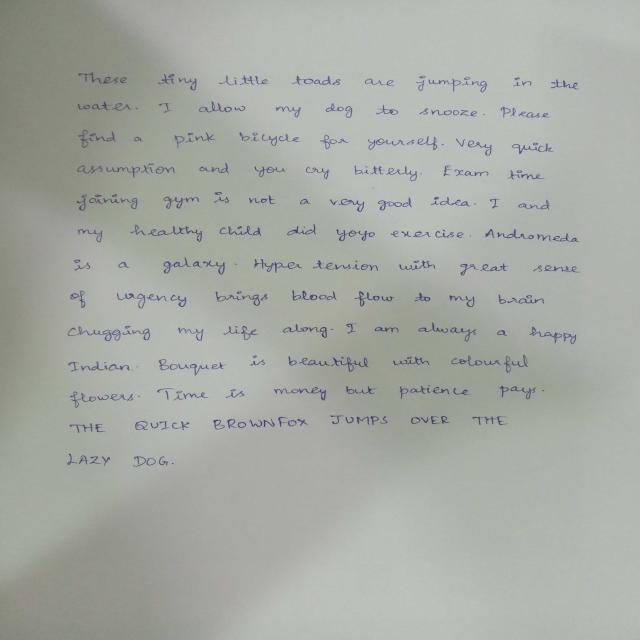 These tiny little toads are jumping in the
water. I allow my dog to snooze. Please
find a pink bicycle for yourself. Very quick
assumption and you cry bitterly. Exam time
joining gym is not a very good idea. I and
my healthy child did yoyo exercise. Andromeda
is a galaxy. Hyper tension with great sense
of urgency brings blood flow to my brain
chugging my life along. I am always a happy
Indian. Bouquet is beautiful with colourful
flowers. Time is money but patience pays.
THE QUICK BROWNFOX JUMPS OVER THE
LAZY DOG.